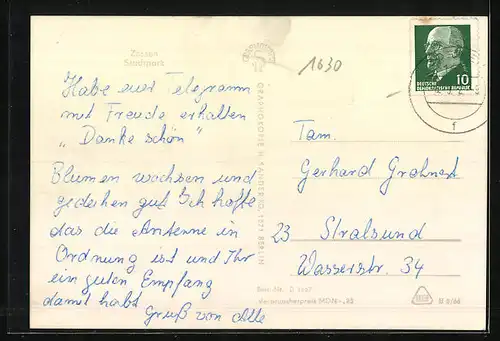 Zossen
Stadtpark
1630
10
DEUTSCHE
DEMOKRATISCHE REPUBLIK
f
Habe euer Telegramm
mit Freude erhalten
„Danke schön"
Blumen wachsen und
gedeihen gut. Ich hoffe
das die Antenne in
Ordnung ist und Ihr
ein guten Empfang
damit habt
Gruß von Alle
Fam.
Gerhard
23 Stralsund
Wasserstr. 34
BERLIN
Best.-Nr.
Verbraucherpreis MDN -,25
II 8/66